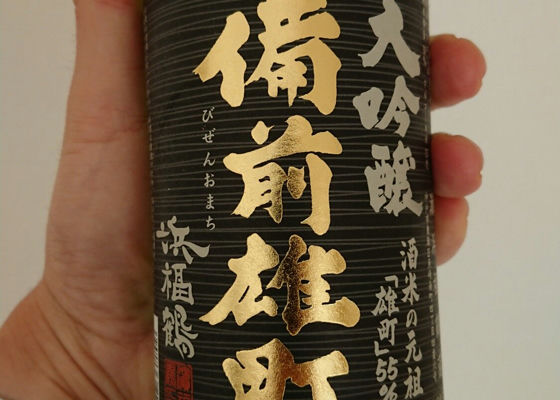 大吟醸
酒米の元祖
「雄町」55%
備前雄町
びぜんおまち
浜福鶴